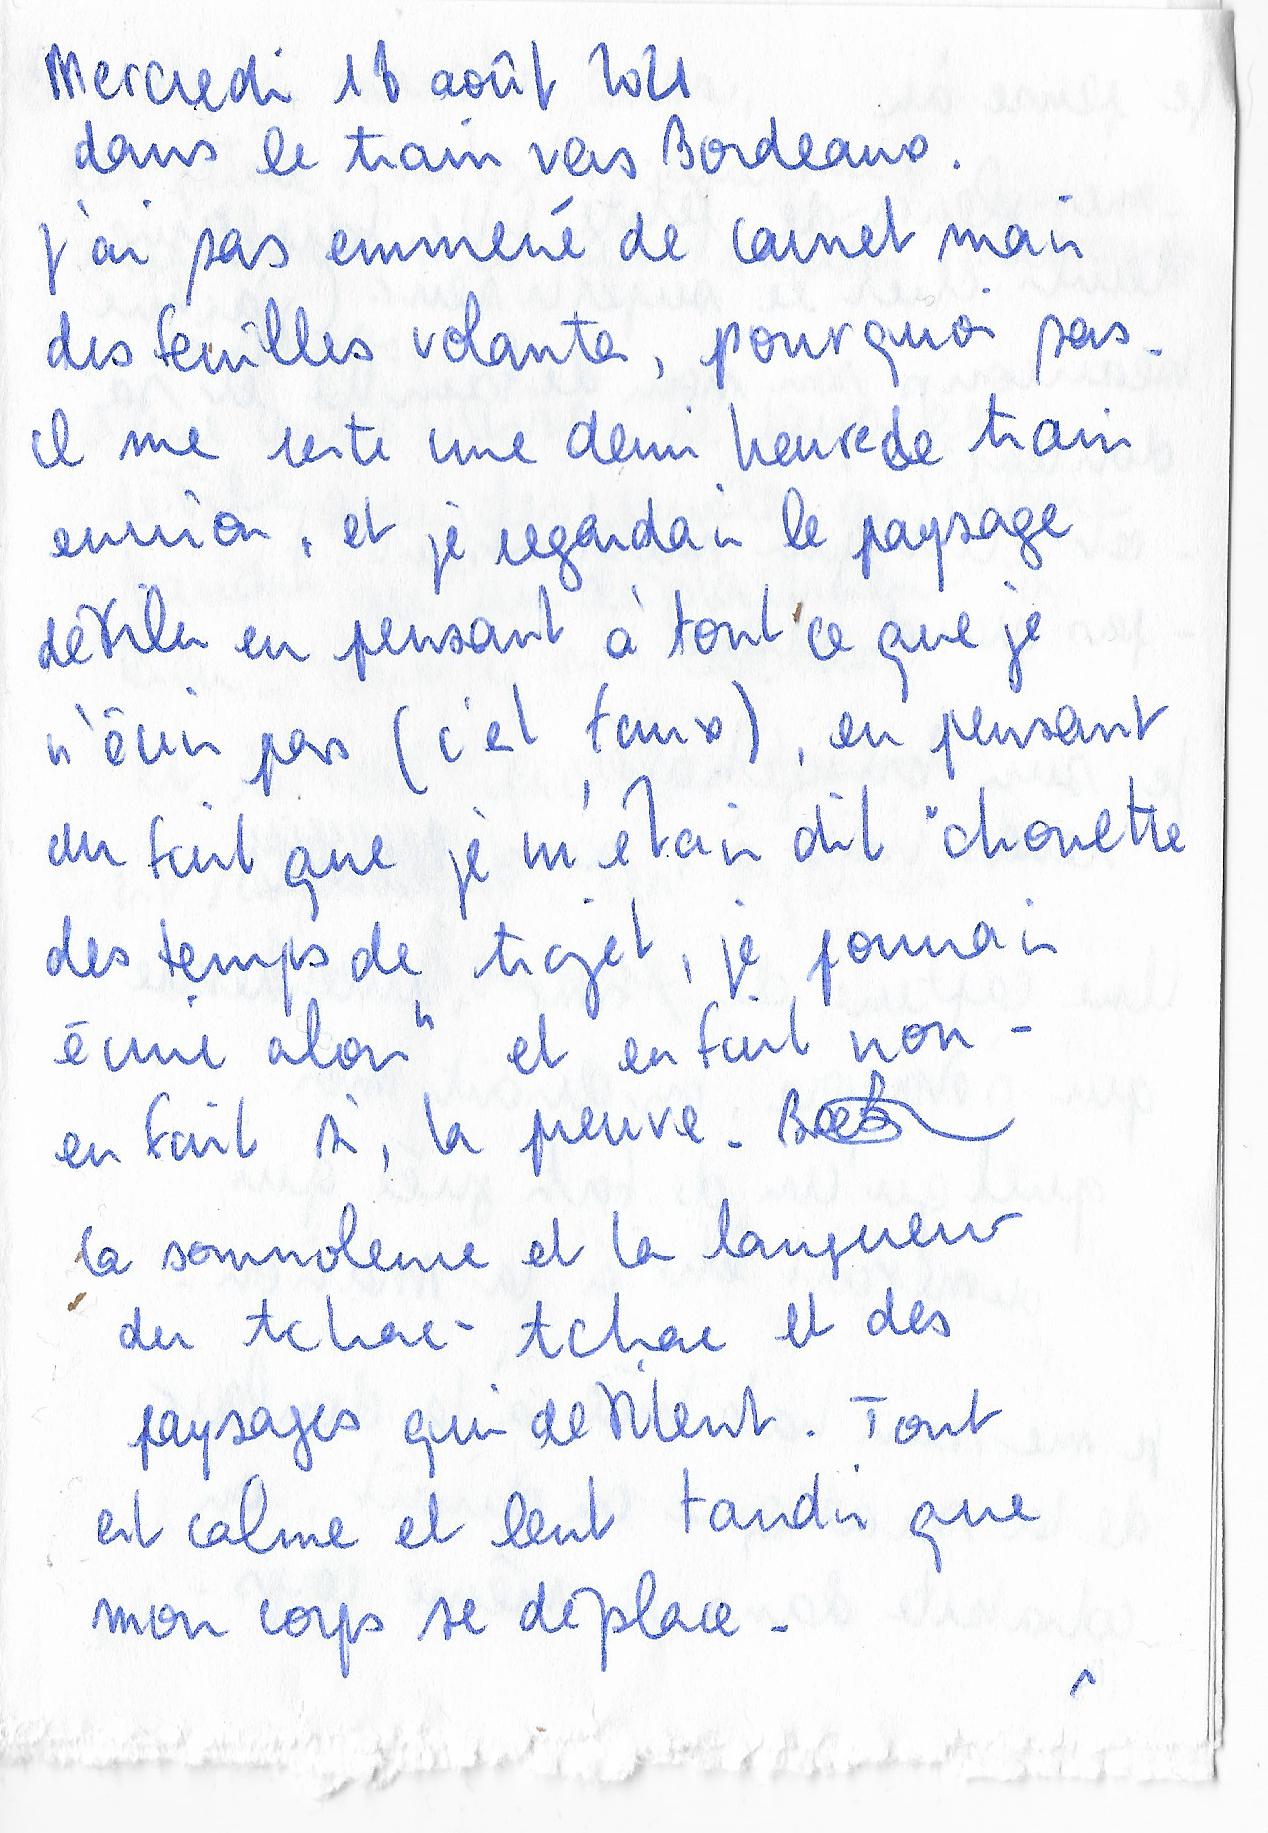 Mercredi 18 août 2021
dans le train vers Bordeaux.
j'ai pas emmené de carnet mais
des feuilles volantes, pourquoi pas.
il me reste une demi heure de train
environ, et je regardais le paysage
défiler en pensant à tout ce que je
n'écris pas (c'est faux), en pensant
au fait que je m'étais dit "chouette
des temps de trajet, je pourrais
écrire alors" et en fait non -
en fait si, la preuve.
la somnolence et la langueur
du tchac-tchac et des
paysages qui défilent. Tout
est calme et lent tandis que
mon corps se déplace.